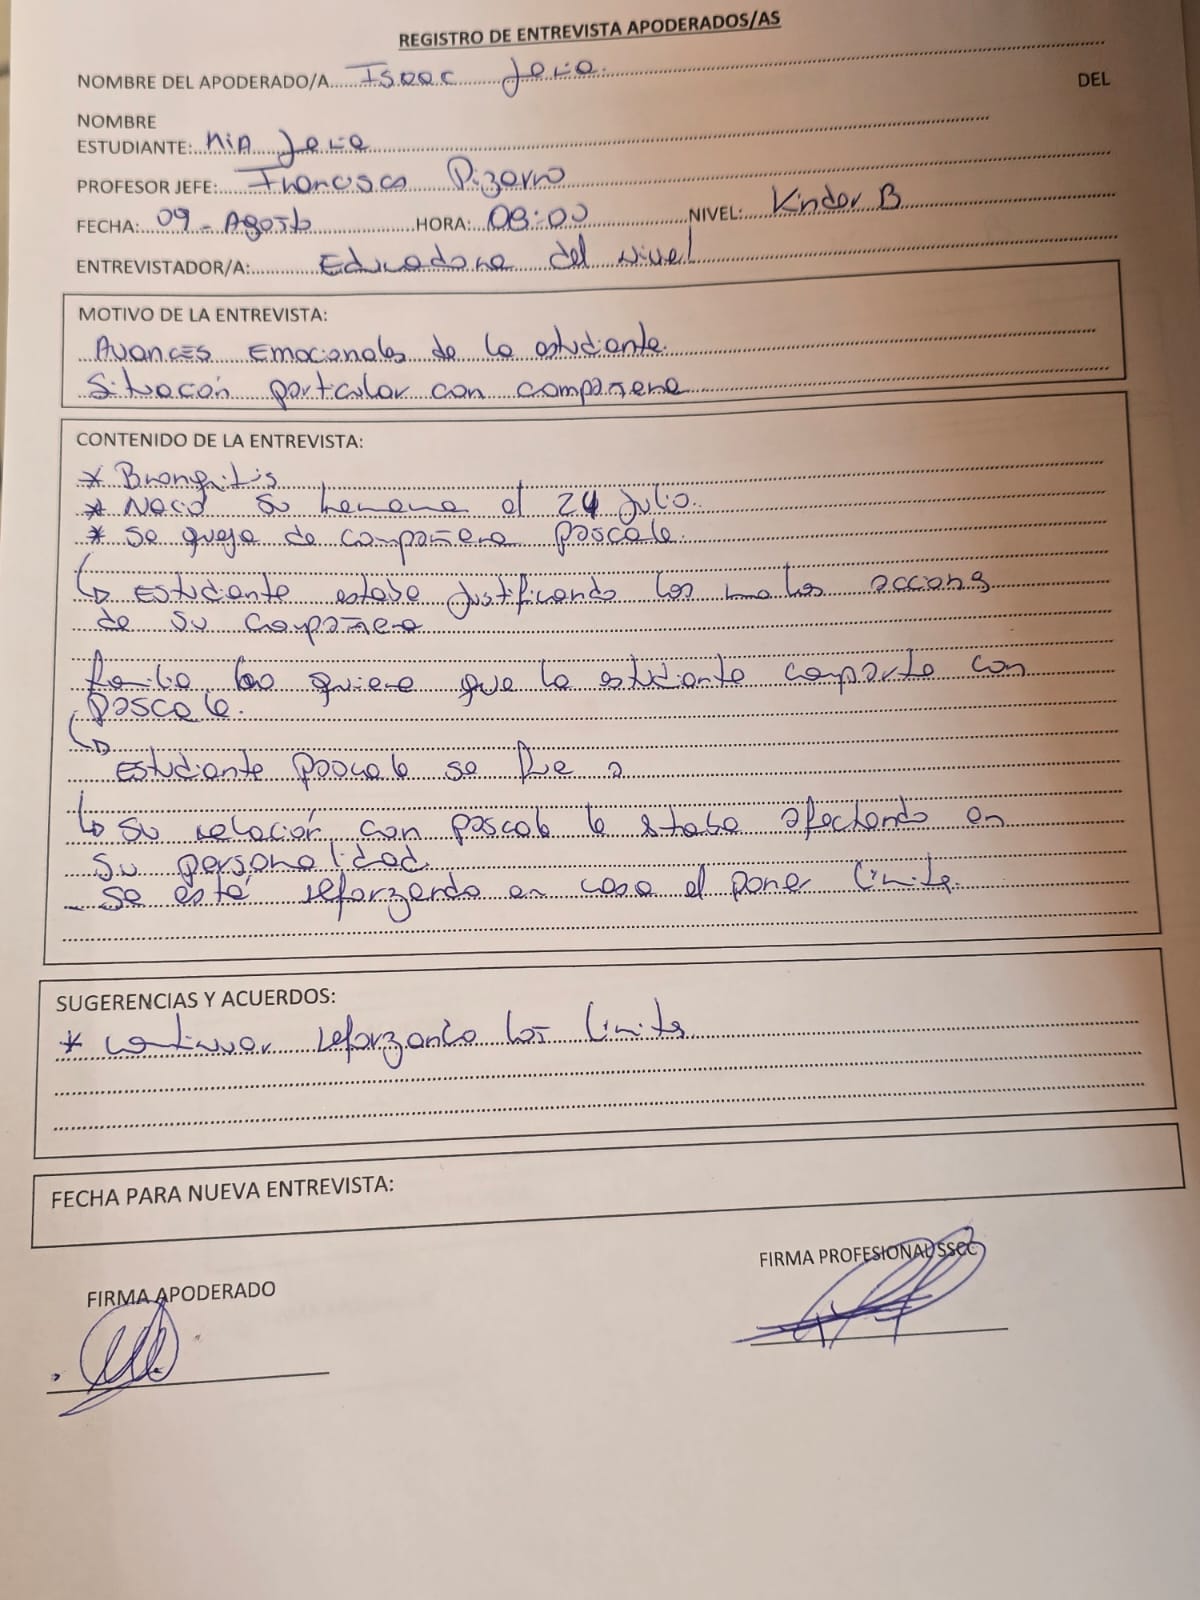 REGISTRO DE ENTREVISTA APODERADOS/AS
NOMBRE DEL APODERADO/A Isaac Jeria.
DEL
NOMBRE
ESTUDIANTE: Mia Jeria
PROFESOR JEFE: Francisca Pizarro
FECHA: 09 - Agosto HORA: 08:00 NIVEL: Kinder B
ENTREVISTADOR/A: Educadora del nivel
MOTIVO DE LA ENTREVISTA:
Avances Emocionales de la estudiante.
Situación particular con compañera
CONTENIDO DE LA ENTREVISTA:
* Bronquitis
* Nació su hermana el 24 Julio.
* Se queja de compañera Pascale.
↳ Estudiante estaba justificando las malas acciones
de su compañera
familia no quiere que la estudiante comparta con
Pascale.
↳
Estudiante Pascale se fue a
↳ Su relación con Pascale le estaba afectando en
su personalidad.
- Se está reforzando en casa el poner límite.
SUGERENCIAS Y ACUERDOS:
* Continuar reforzando los límites
FECHA PARA NUEVA ENTREVISTA:
FIRMA PROFESIONAL SSCC
FIRMA APODERADO